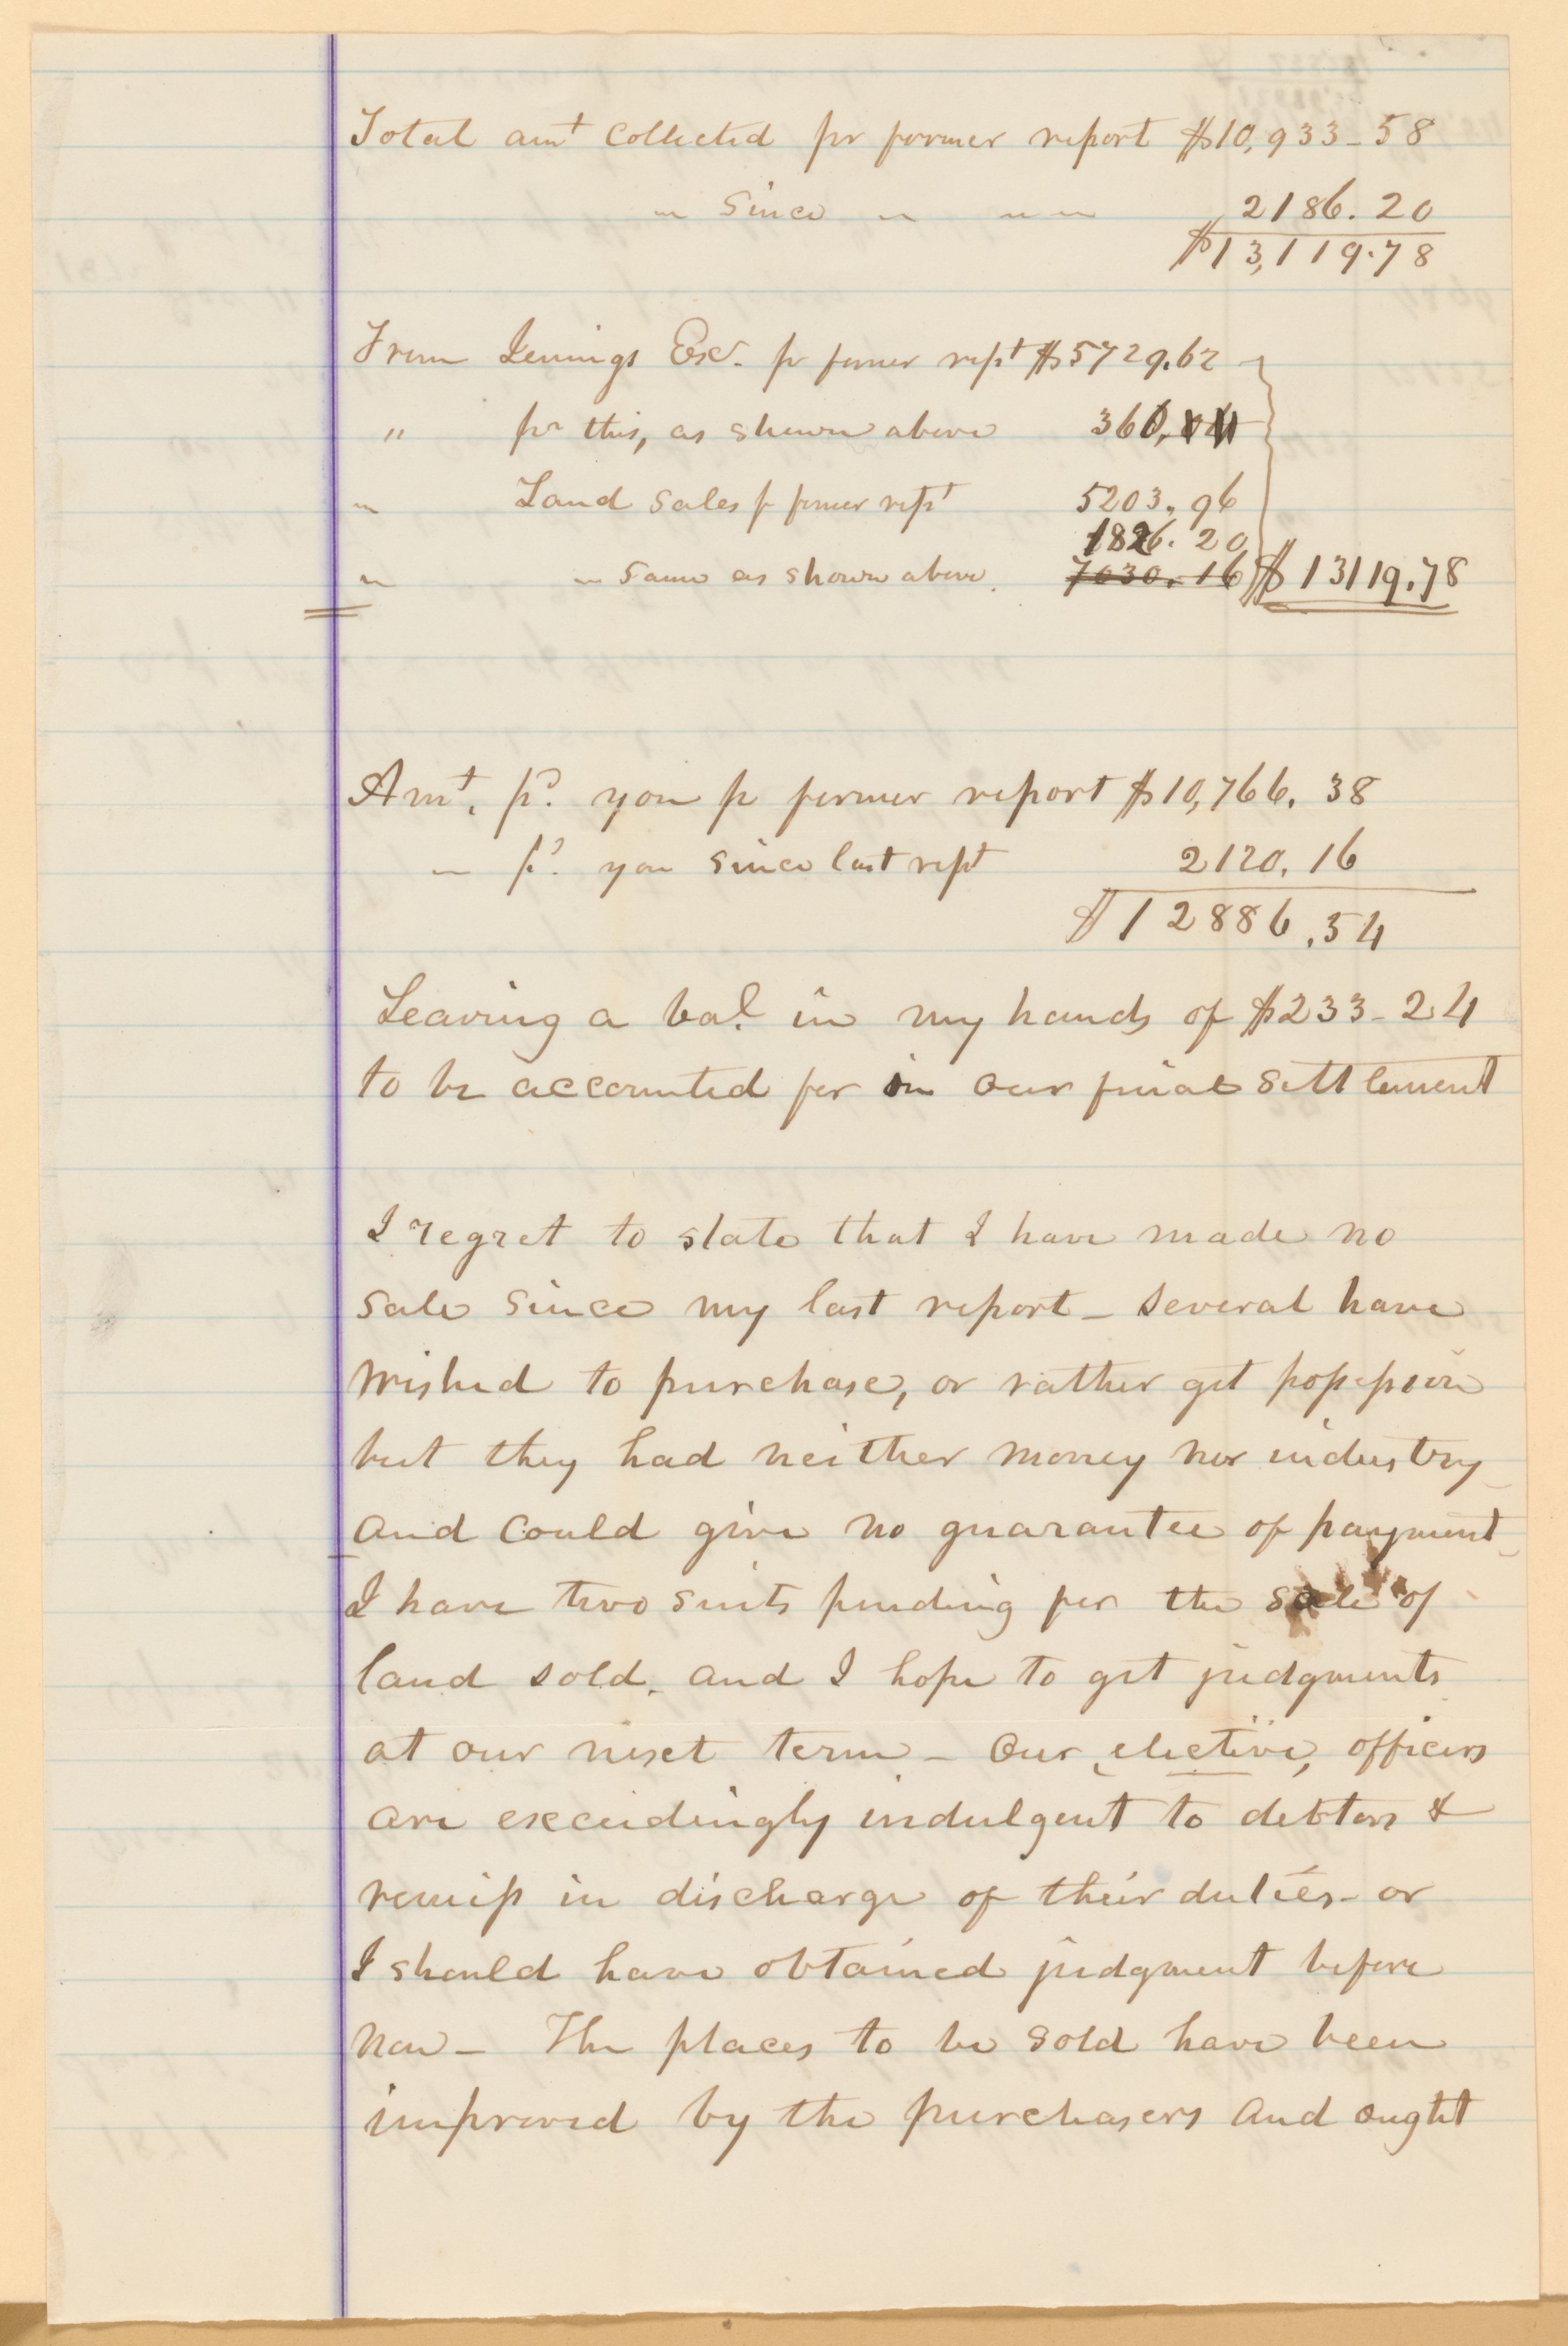 Total amt Collected pr former report $10,933-58
" Since " " " 2186.20
$13,119.78
From Jenings Exr. pr former rept $5729.62
" pr this, as shewn above 360,
" Land Sales p former rept 5203.96
1826.20
" " Same as shown above. 7030.16 $13119.78
Amt. pd. you pr former report $10,766.38
" pd. you since last rept 2120.16
$12886.54
Leaving a bal. in my hands of $233-24
to be accounted for in our final settlement
I regret to state that I have made no
sale since my last report - several have
wished to purchase, or rather get possession
but they had neither money nor industry
and could give no guarantee of payment
I have two suits pending for the sale of
land sold. and I hope to get judgments
at our next term - Our elective, officers
are exceedingly indulgent to debtors &
remiss in discharge of their duties - or
I should have obtained judgment before
now - The places to be sold have been
improved by the purchasers and ought